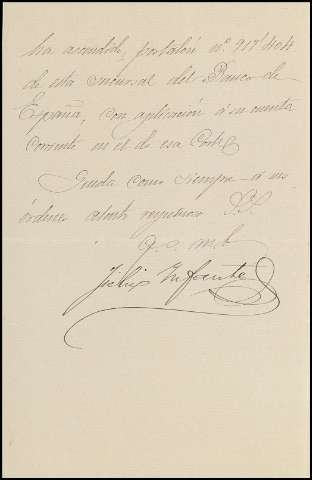 ha acomdado, por talón nº 917404
de esta sucursal del Banco de
España, con aplicación á su cuenta
corriente en el de esa Corte
Queda como siempre á sus
órdenes atento seguro S.S.
q. s. m. b.
Felix Infante